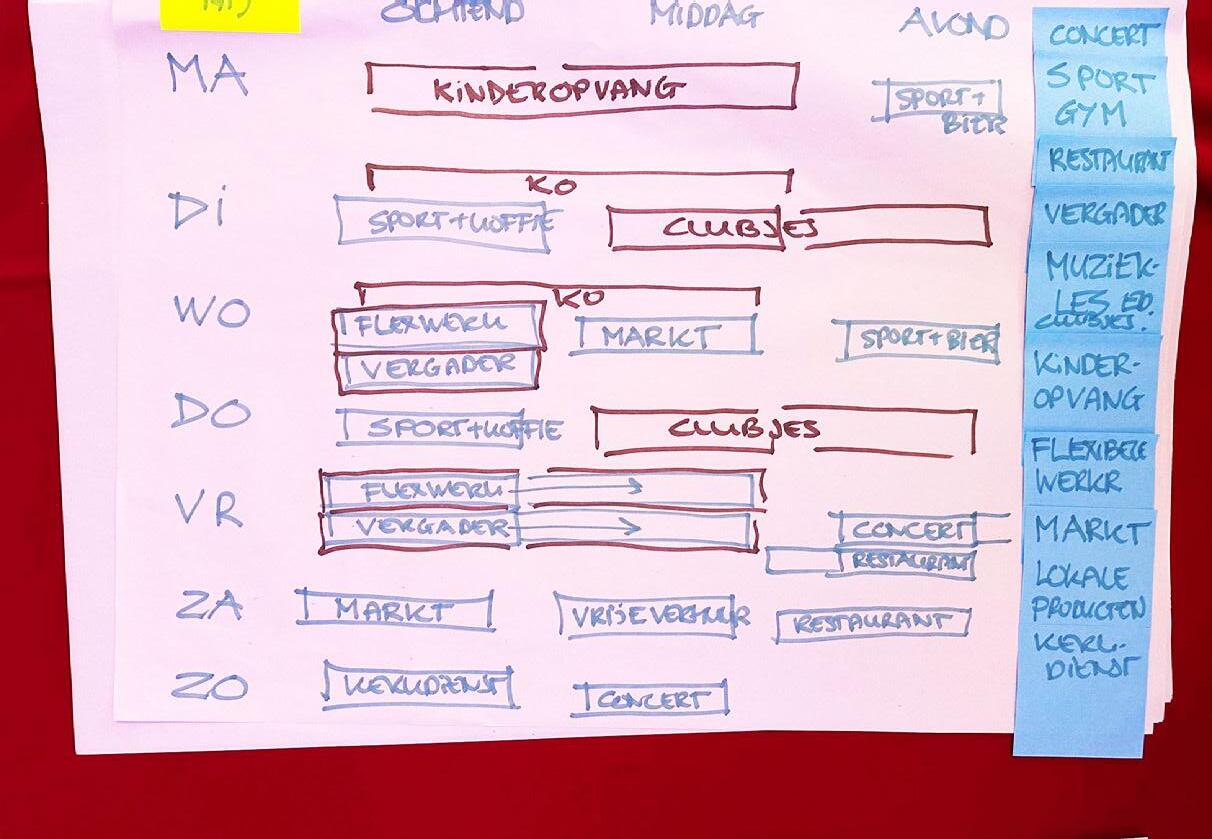 OCHTEND MIDDAG AVOND
MA KINDEROPVANG SPORT+
BIER
DI KO
SPORT+KOFFIE CLUBJES
WO KO
FLEXWERK MARKT SPORT+BIER
VERGADER
DO SPORT+KOFFIE CLUBJES
VR FLEXWERK
VERGADER CONCERT
RESTAURANT
ZA MARKT VRIJE VERHUUR RESTAURANT
ZO KERKDIENST CONCERT
CONCERT
SPORT
GYM
RESTAURANT
VERGADER
MUZIEK-
LES EO.
CLUBJES.
KINDER-
OPVANG
FLEXIBELE
WERKR
MARKT
LOKALE
PRODUCTEN
KERK-
DIENST